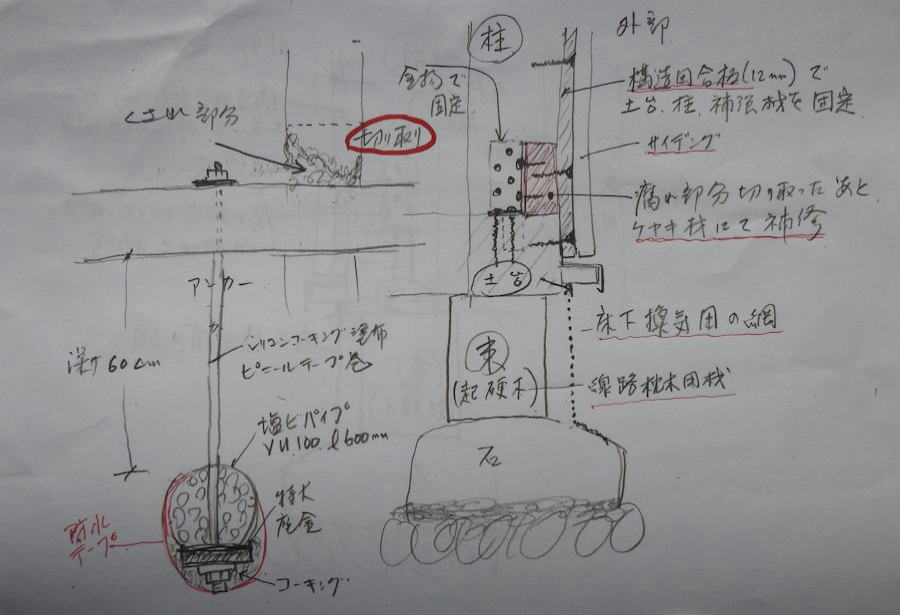 くされ部分
切り取り
アンカー
深サ60cm
シリコンコーキング塗布
ビニールテープ巻
塩ビパイプ
VU100 ℓ600mm
特大
座金
防水
テープ
コーキング
柱
金物で
固定
外部
構造用合板(12mm)で
土台、柱、補強材を固定
サイディング
腐れ部分切り取ったあと
ケヤキ材にて補修
土台
床下換気用の網
束
(超硬木)
線路枕木用材
石